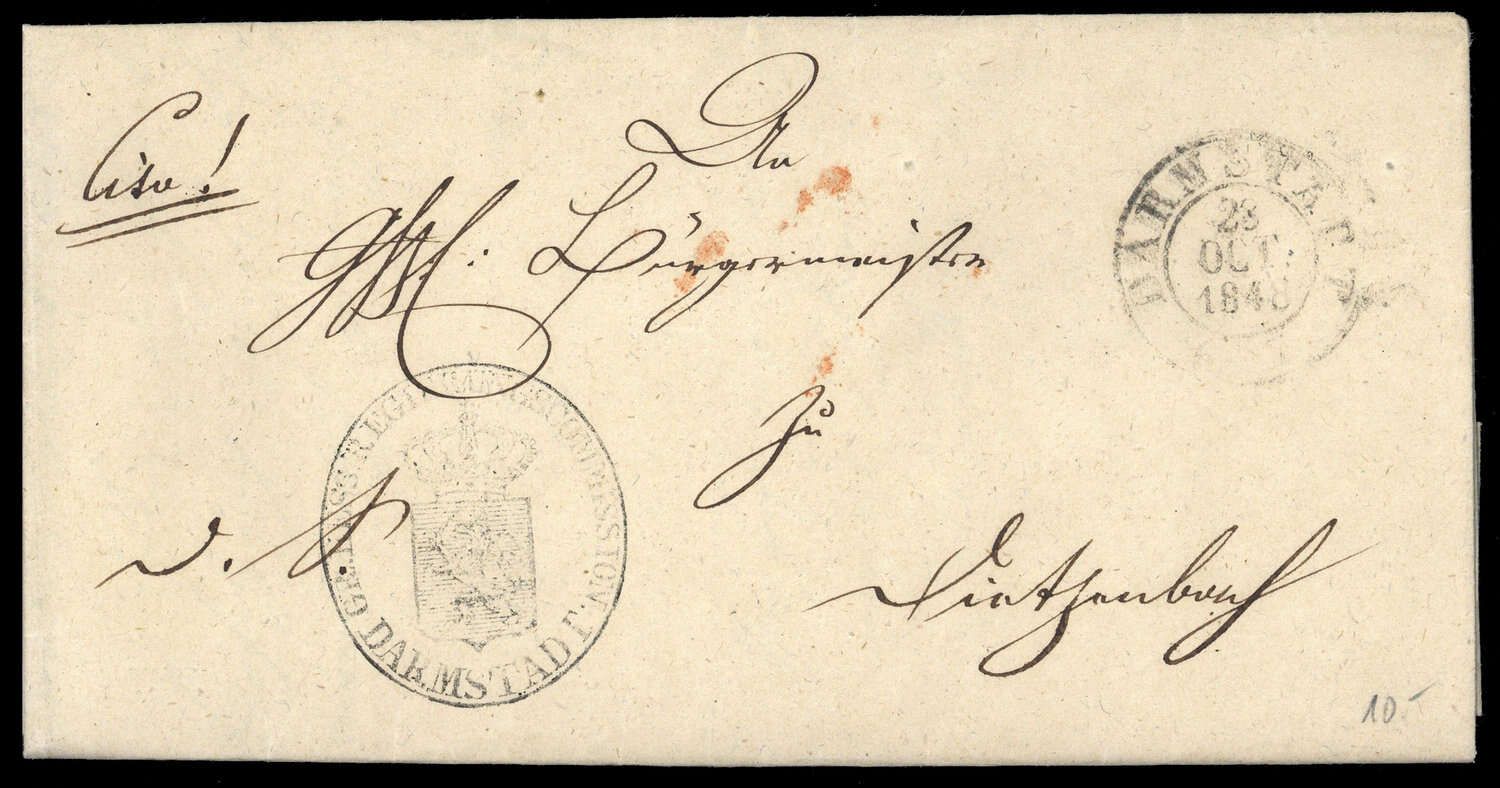 Cito!
An
Ghzl: Bürgermeister
zu
Dietzenbach
d. S.
DARMSTADT
23
OCT.
1848
GR. HESS REGIERUNGSCOMMISSION.
DARMSTADT
10.-